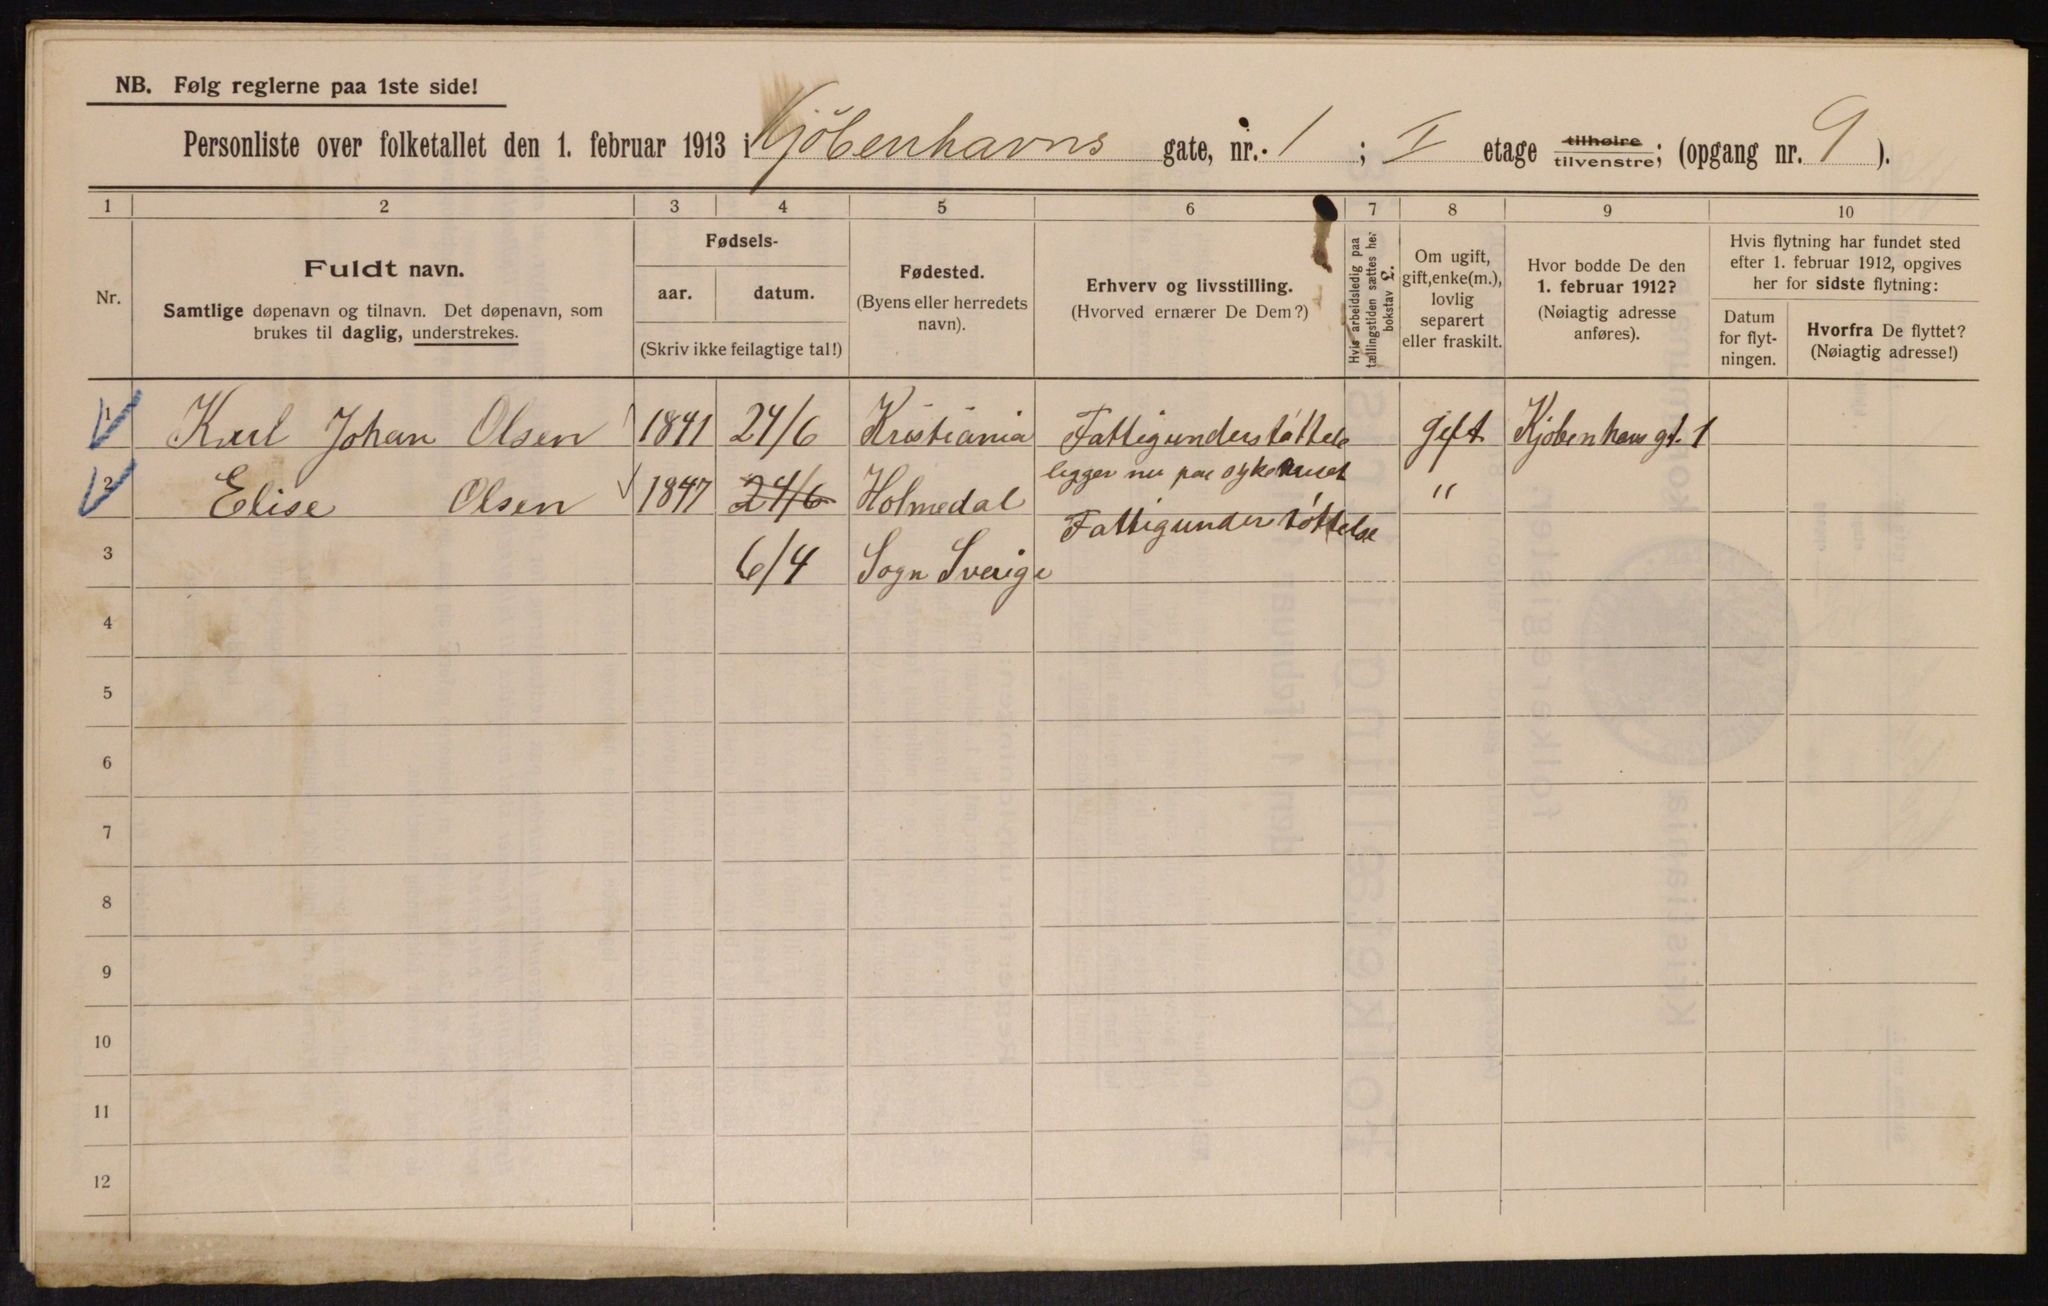 NB. Følg reglerne paa 1ste side!
Personliste over folketallet den 1. februar 1913 i Kjøbenhavns gate, nr. 1 ; I etage tilhøire tilvenstre; (opgang nr. 9 ).
1 2 3 4 5 6 7 8 9 10
Nr.
Fuldt navn.
Samtlige døpenavn og tilnavn. Det døpenavn, som
brukes til daglig, understrekes.
Fødsels-
aar. datum.
(Skriv ikke feilagtige tal!)
Fødested.
(Byens eller herredets
navn).
Erhverv og livsstilling.
(Hvorved ernærer De Dem?)
Hvis arbeidsledig paa
tællingstiden sættes her
bokstav L.
Om ugift,
gift, enke(m.),
lovlig
separert
eller fraskilt.
Hvor bodde De den
1. februar 1912?
(Nøiagtig adresse
anføres).
Hvis flytning har fundet sted
efter 1. februar 1912, opgives
her for sidste flytning:
Datum
for flyt-
ningen.
Hvorfra De flyttet?
(Nøiagtig adresse!)
1 Karl Johan Olsen 1841 24/6 Kristiania Fattigunderstøttels gift Kjøbenhavs gt. 1
ligger nu paa sykehuset
2 Elise Olsen 1847 24/6 Holmedal "
Fattigunderstøttelse
3 6/4 Sogn Sverige
4
5
6
7
8
9
10
11
12